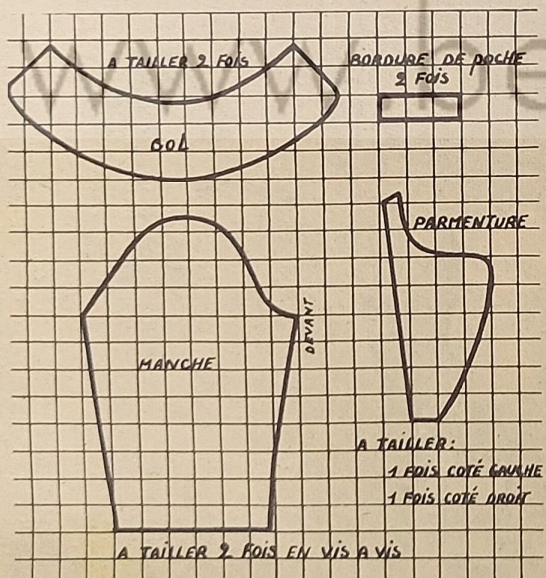 A TAILLER 2 FOIS
BORDURE DE POCHE
2 FOIS
COL
PARMENTURE
DEVANT
MANCHE
A TAILLER:
1 FOIS COTÉ GAUCHE
1 FOIS COTÉ DROIT
A TAILLER 2 FOIS EN VIS A VIS
www.be